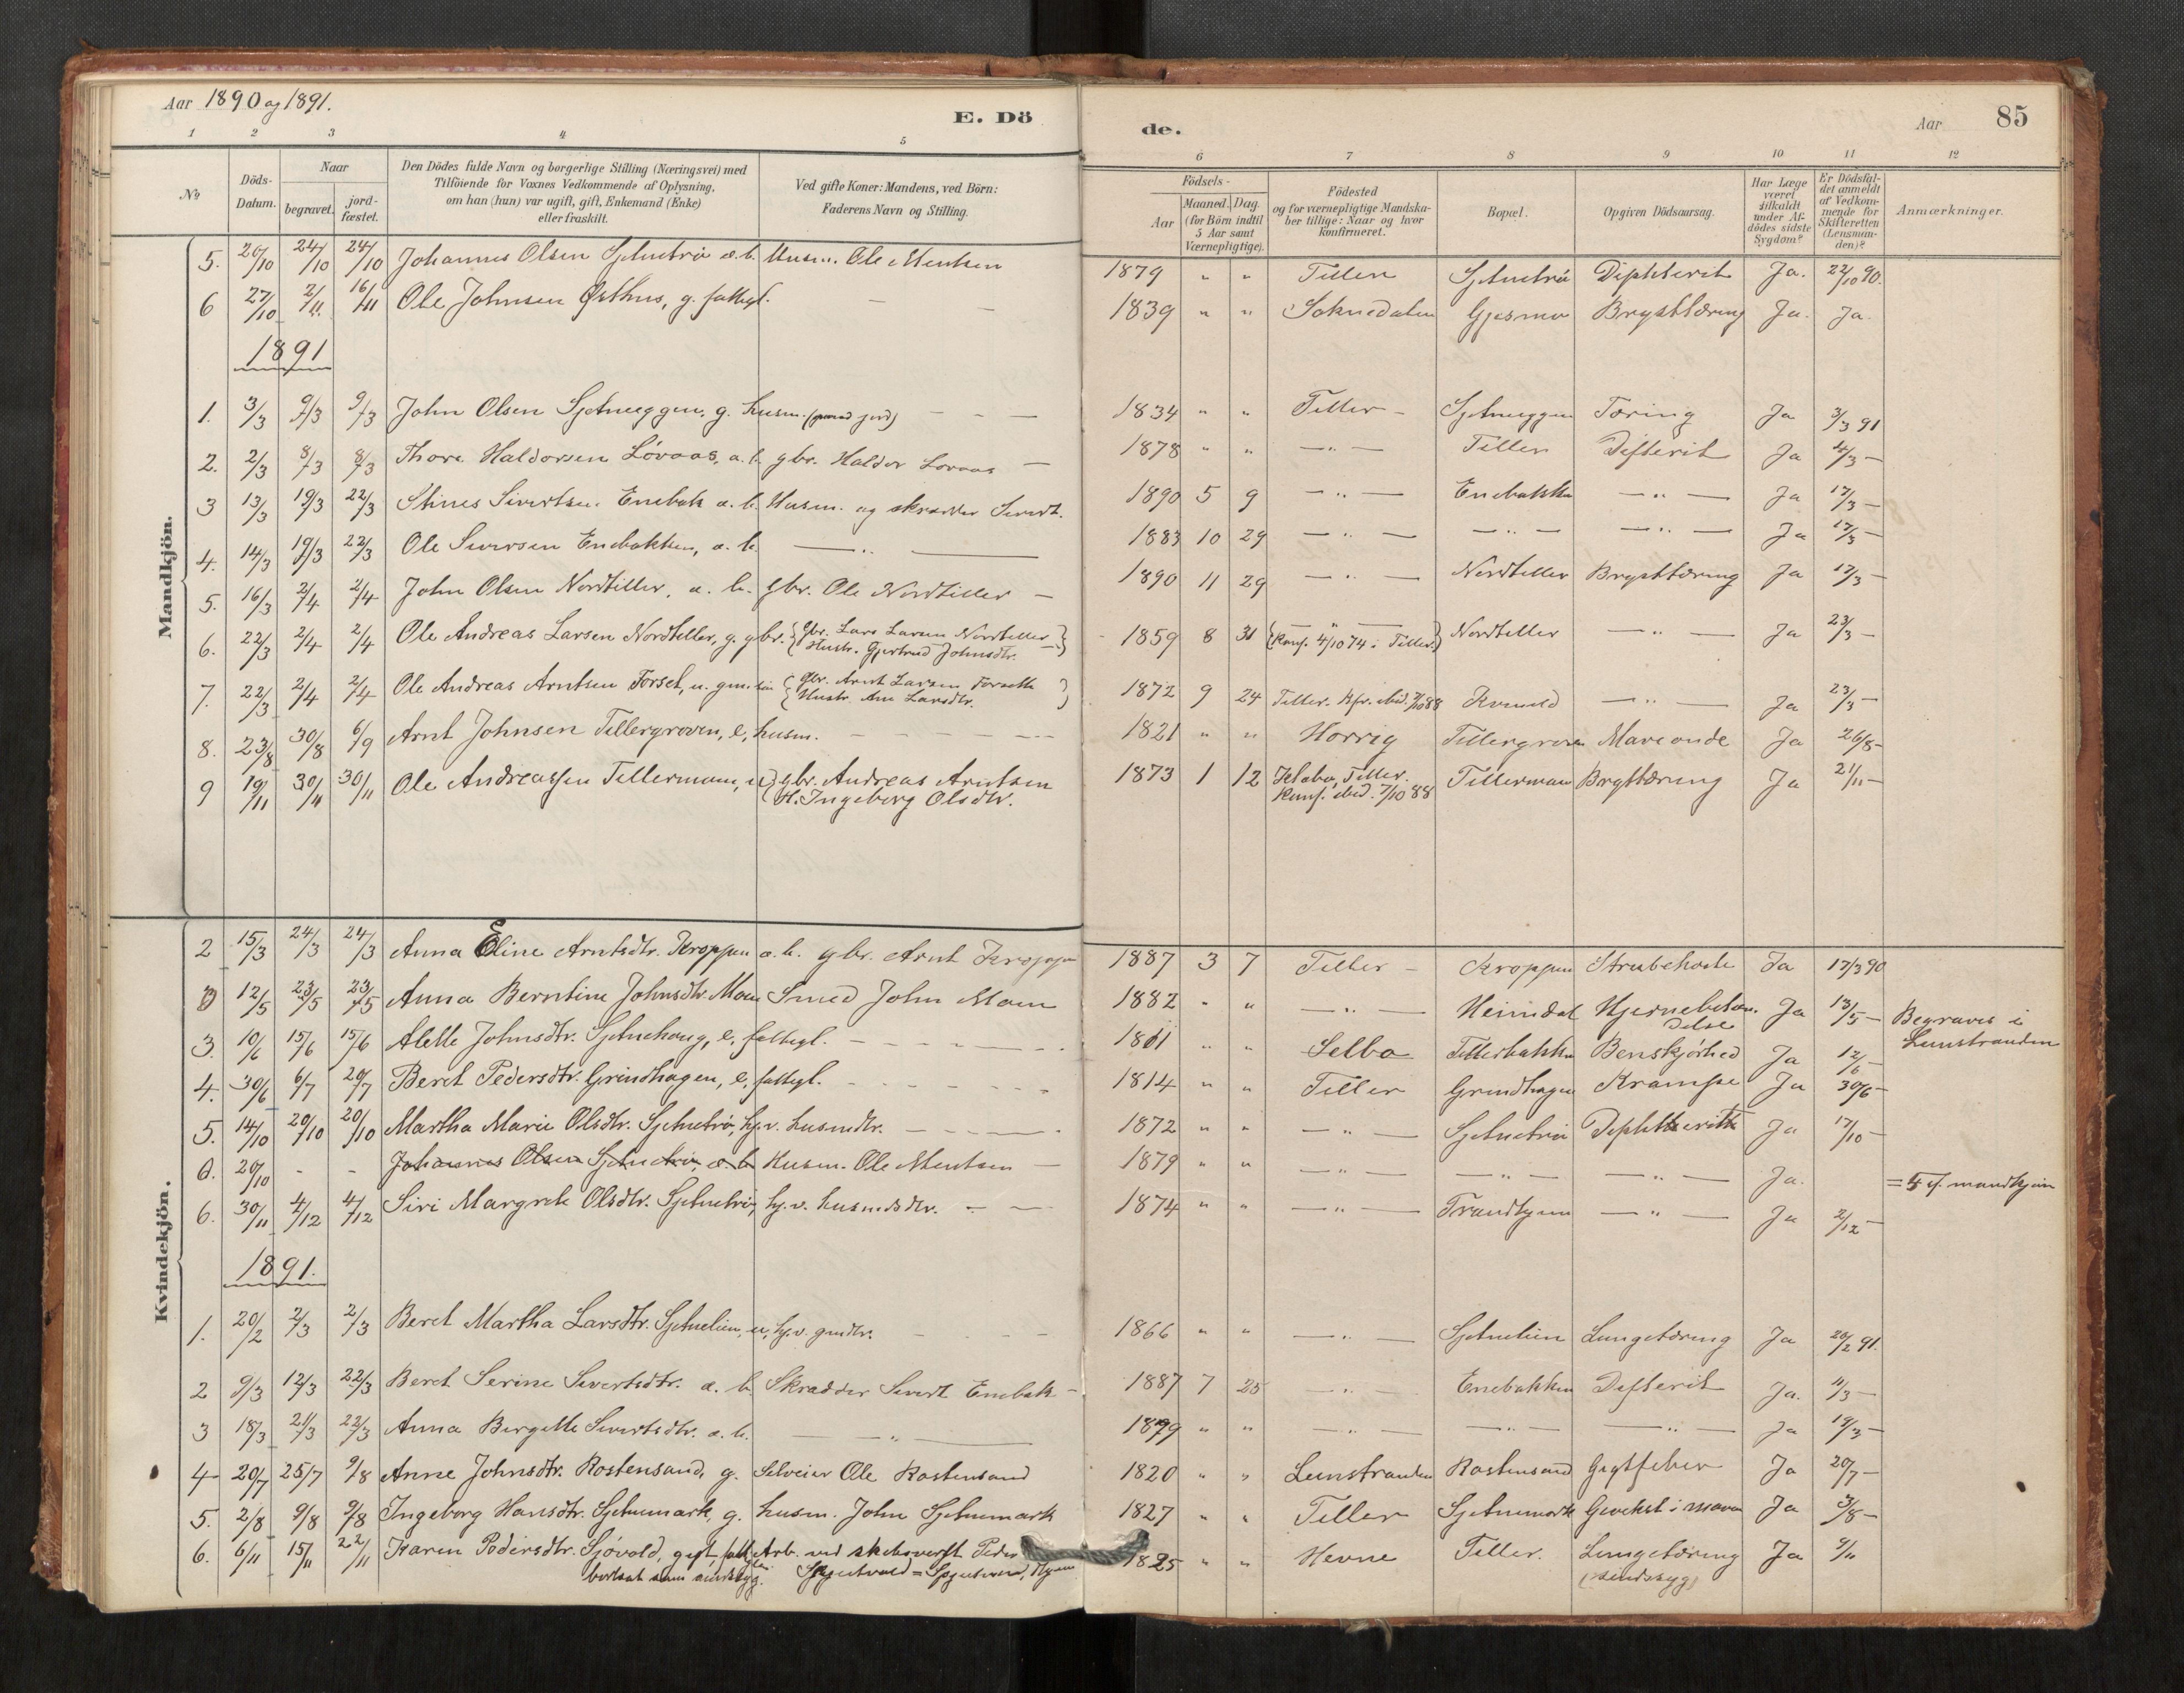 Aar 1890 og 1891.
E. Dö
de.
Aar 85
1 2 3 4 5 6 7 8 9 10 11 12
No
Döds-Datum.
Naar
begravet.
jord-fæstet.
Den Dödes fulde Navn og borgerlige Stilling (Næringsvei) med
Tilföiende for Voxnes Vedkommende af Oplysning,
om han (hun) var ugift, gift, Enkemand (Enke)
eller fraskilt.
Ved gifte Koner: Mandens, ved Börn:
Faderens Navn og Stilling.
Födsels-
Aar
Maaned. Dag.
(for Börn indtil
5 Aar samt
Værnepligtige).
Födested
og for værnepligtige Mandska-
ber tillige: Naar og hvor
konfirmeret.
Bopæl.
Opgiven Dödsaarsag.
Har Læge
været
tilkaldt
under Af-
dödes sidste
Sygdom?
Er Dödsfal-
det anmeldt
af Vedkom-
mende for
Skifteretten
(Lensman-
den)?
Anmærkninger.
Mandkjön.
5. 20/10 24/10 24/10 Johannes Olsen Sjetnetrö æ. b. Husm. Ole Mentsen 1879 " " Tiller Sjetnetrö Diphterit Ja. 22/10 90.
6 27/10 2/11 16/11 Ole Johnsen Østhus, g. fattigl. — — 1839 " " Soknedalen Gjesmo Brysttæring Ja. Ja.
1891
1. 3/3 9/3 9/3 John Olsen Sjetneggen, g. husm. (med jord) — — — 1834 " " Tiller — Sjetneggen Tæring Ja 3/3 91
2. 2/3 8/3 8/3 Thore Haldorsen Løvaas, æ. b. gbr. Haldor Lovaas — 1878 " " — " — Tiller Difterit Ja 4/3 —
3 13/3 19/3 22/3 Stines Sivertsen Enebak æ. b. Husm. og skrædder Sivert. 1890 5 9 — " — Enebakken — " — Ja 17/3 —
4. 14/3 19/3 22/3 Ole Siversen Enebakken, æ. b. — " — 1883 10 29 — " — — " — — " — Ja 17/3 —
5. 16/3 2/4 2/4 John Olsen Nordtiller, æ. b. gbr. Ole Nordtiller — 1890 11 29 — " — Nordtiller Brysttæring Ja 17/3 —
6. 22/3 2/4 2/4 Ole Andreas Larsen Nordtiller, g. gbr. {Gbr. Lars Larsen Nordtiller —} 1859 8 31 {— " — Nordtiller — " — Ja 23/3 —
Hustr. Gjertrud Johnsdtr. Konf. 4/10 74 i Tiller.}
7. 22/3 2/4 2/4 Ole Andreas Arntsen Forset, u. gmsøn {Gbr. Arnt Larsen Forseth} 1872 9 24 Tiller. Kfr. ibid. 7/10 88 Kvenild — " — Ja 23/3 —
Hustr. Ane Larsdtr.
8. 23/8 30/8 6/9 Arnt Johnsen Tillergroven, e, husm. — — — 1821 " " Horrig Tillergroven Maveonde Ja 26/8 —
9 19/11 30/11 30/11 Ole Andreassen Tillermoen, u {gbr. Andreas Arntsen 1873 1 12 Klæbo, Tiller. Tillermoen Brysttæring Ja 21/11 —
H. Ingeborg Olsdtr. Konf. ibid. 7/10 88
Kvindekjön.
2 15/3 24/3 24/3 Anna Eline Arntsdtr. Kroppen æ. b. gbr. Arnt Kroppen 1887 3 7 Tiller — Kroppen Strubehoste Ja 17/3 90
12/5 23/5 23/5 Anna Berntine Johnsdtr. Moen Smed John Moen 1882 " " — " — Heimdal Hjernebetæn- Ja 13/5 — Begraves i
delse Leinstranden
3. 10/6 15/6 15/6 Aletle Johnsdtr. Sjetnehaug, e, fattigl. — — — 1811 " " Selbo Tillerbakken Benskjørhed Ja 12/6 —
4. 30/6 6/7 20/7 Beret Pedersdtr. Grindhagen, e, fattigl. — — — 1814 " " Tiller Grindhagen Krampe Ja 30/6 —
5. 14/10 20/10 20/10 Martha Marie Olsdtr. Sjetnetrö, hj. v. husmdtr. — — — 1872 " " — " — Sjetnetrö Diphtheritt Ja 17/10 —
6. 20/10 - - Johannes Olsen Sjetnetrö, æ. b Husm. Ole Mentsen — 1879 " " — " — — " — — " — Ja. = 5 f. mandkjøn
6. 30/11 4/12 4/12 Siri Margrete Olsdtr. Sjetnetrö, hj. v. husmdsdtr. — — 1874 " " — " — Trondhjem — " — Ja 2/12 —
1891.
1. 20/2 2/3 2/3 Beret Martha Larsdtr. Sjetnelien, u, hj. v. gmdtr. — — — 1866 " " — " — Sjetnelien Lungetæring Ja 20/2 91.
2 9/3 12/3 22/3 Beret Serine Sivertsdtr. æ. b. Skrædder Sivert Enebak — 1887 7 25 — " — Enebakken Difterit Ja. 11/3 —
3 18/3 21/3 22/3 Anna Birgitte Sivertsdtr. æ. b. — " — 1879 " " — " — — " — — " — Ja 19/3 —
4 20/7 25/7 9/8 Anne Johnsdtr. Rostensand, g. Selveier Ole Rostensand 1820 " " Leinstranden Rostensand Gigtfeber Ja 20/7 —
5. 2/8 9/8 9/8 Ingeborg Hansdtr. Sjetnemark, g. husm. John Sjetnemark 1827 " " Tiller Sjetnemark Gevekst i maven Ja 3/8 —
6. 6/11 15/11 22/11 Karen Pedersdtr. Sjövold, gift, fattigl. Arb. ved skibsverft Peder 1825 " " Hevne Tiller. Lungetæring Ja 9/11
bortsat som sindssyg. (sindssyg)